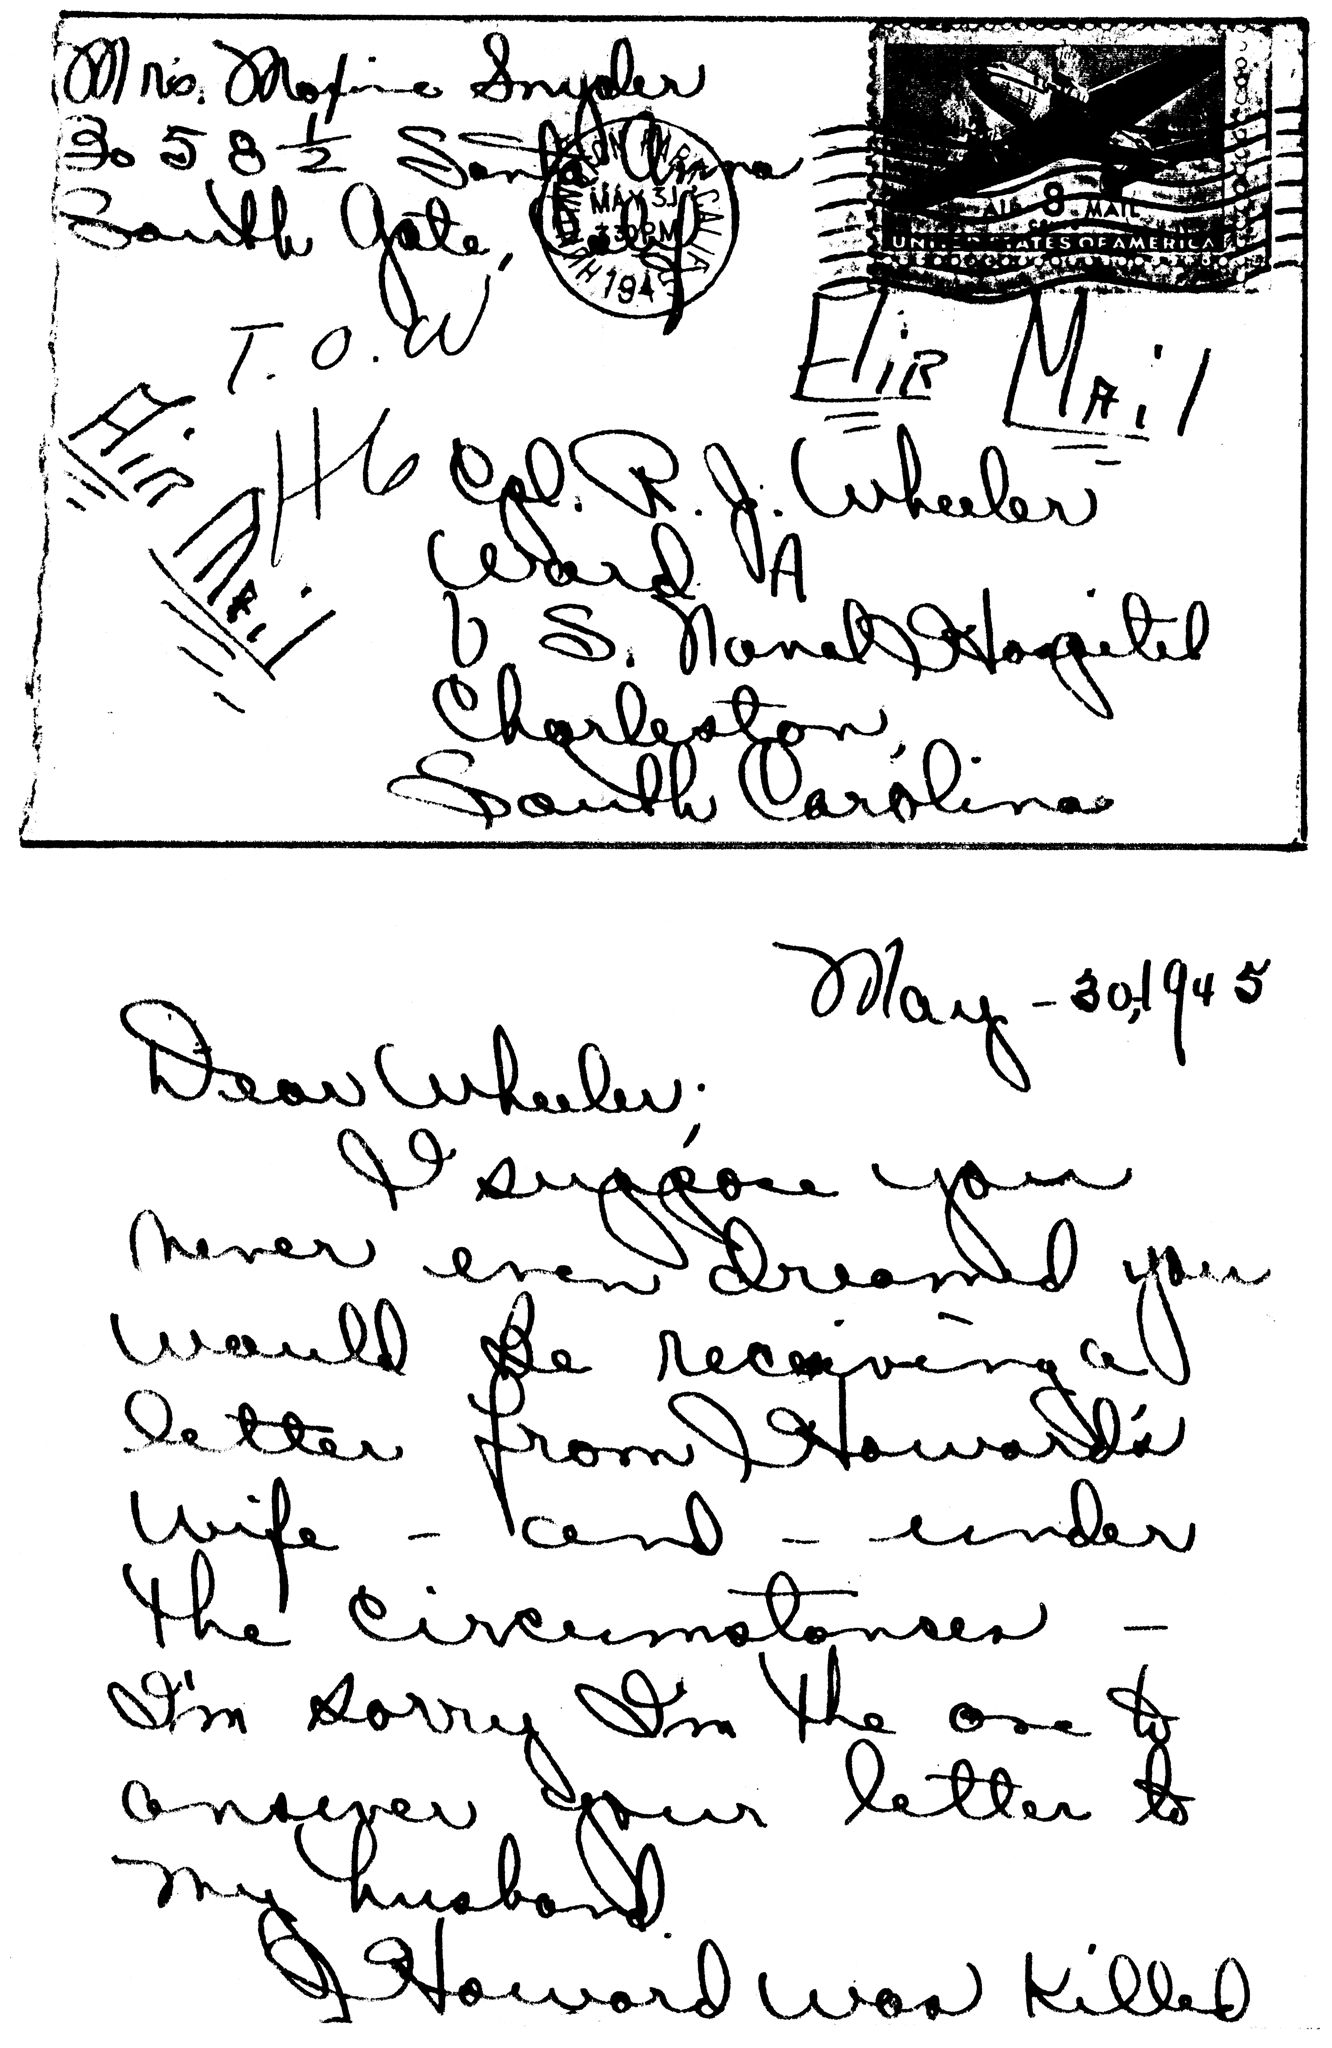 Mrs. Maxine Snyder
3058 1/2 Santa Anna
South Gate, Calif
HUNTINGTON PARK CALIF.
MAY 31
3 30 PM
1945
AIR 8 MAIL
UNITED STATES OF AMERICA
T. O. W
Air Mail
Air Mail
H6
Cpl. R. J. Wheeler
Ward A
U S. Naval Hospital
Charleston,
South Carolina
May - 30, 1945
Dear Wheeler;
I suppose you
never even dreamed you
would be receiving a
letter from Howard's
wife - and - under
the circumstances -
I'm sorry I'm the one to
answer your letter to
my husband.
Howard was killed